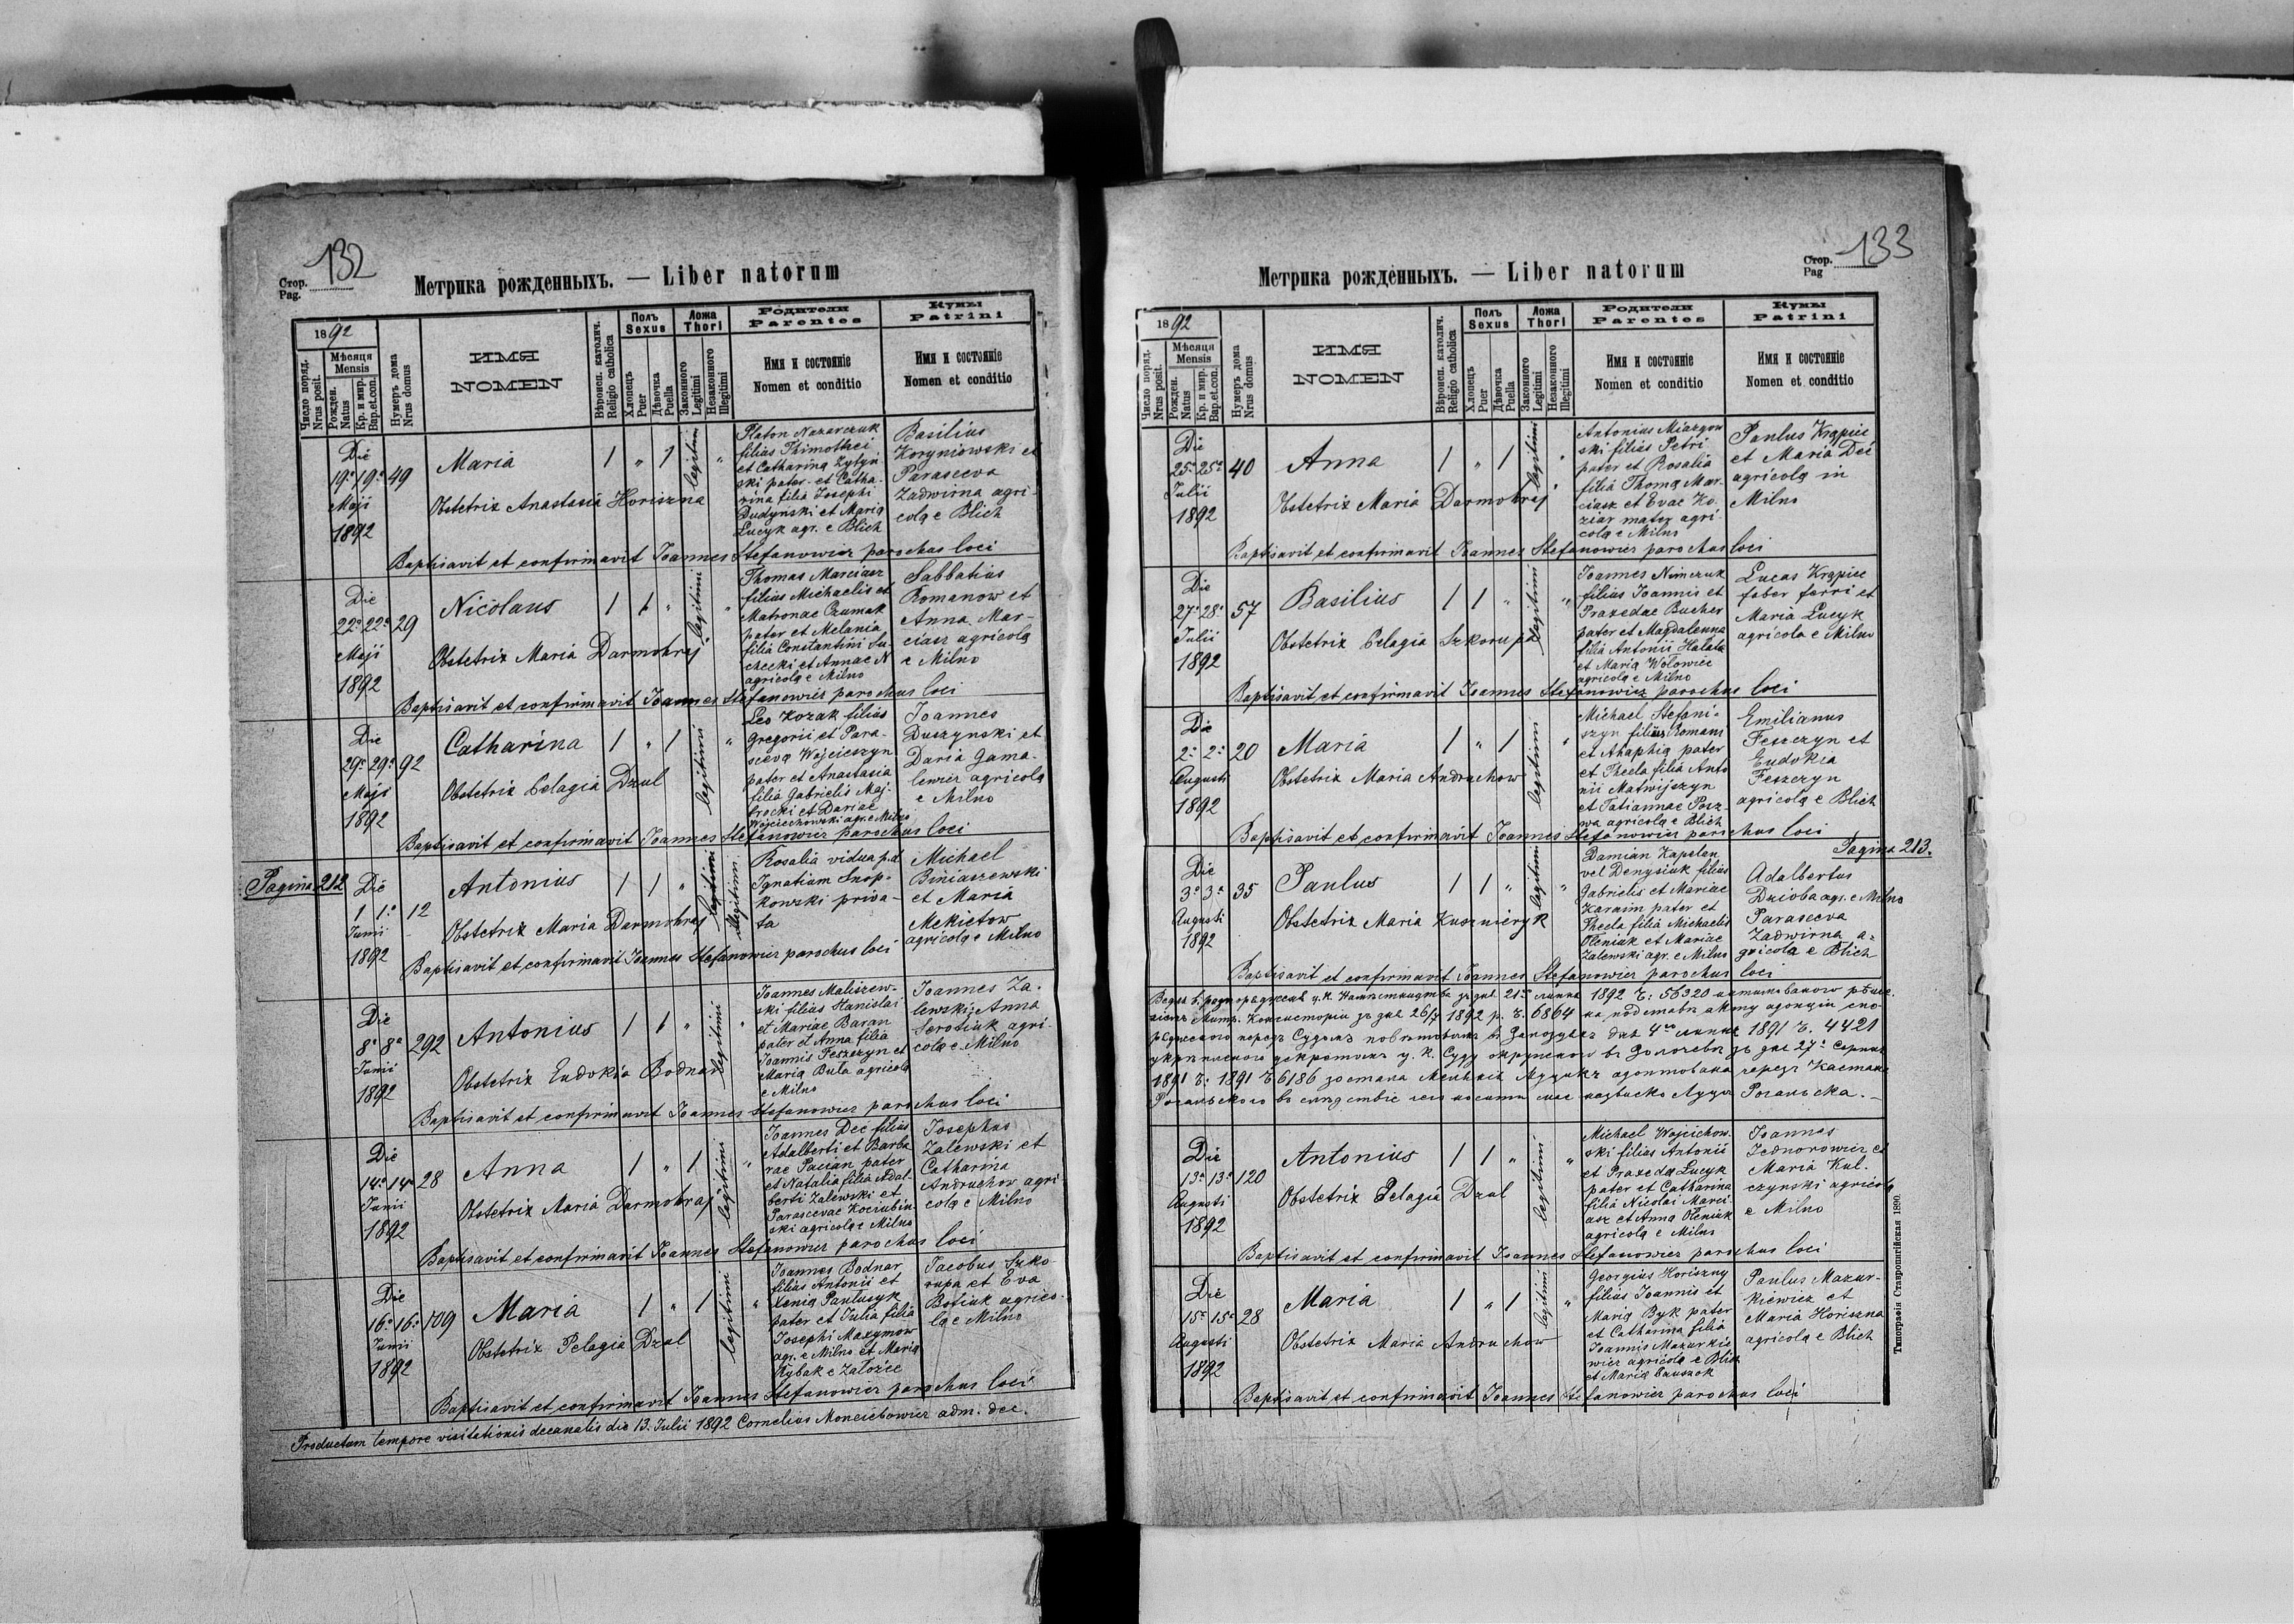 132
Стор.
Pag.
Метрика рожденныхъ. — Liber natorum
1892
Число поряд.
Nrus posit.
Мѣсяця
Mensis
Рожден.
Natus
Кр. и мир.
Bap.et.con.
Нумеръ дома
Nrus domus
ИМЯ
NOMEN
Вѣроисп. католич.
Religio catholica
Полъ
Sexus
Хлопецъ
Puer
Дѣвочка
Puella
Ложа
Thori
Законного
Legitimi
Незаконного
Illegitimi
Родители
Parentes
Имя и состояніе
Nomen et conditio
Кумы
Patrini
Имя и состояніе
Nomen et conditio
Die
19a 19a
Maji
1892
49
Maria
1 " 1 legitimi "
Obstetrix Anastasia Horiszna
Platon Nazarczuk
filius Thimothei
et Catharina Zytyn
ski pater et Catha-
rina filia Josephi
Dudynski et Maria
Lucyk agr. e Blich
Basilius
Koryniowski et
Parasceva
Zadwirna agri-
cola e Blich
Baptisavit et confirmavit Joannes Stefanowicz parochus loci
Die
22a 22a
Maji
1892
29
Nicolaus
1 1 " legitimi "
Obstetrix Maria Darmohraj
Thomas Marciasz
filius Michaelis et
Matronae Czumak
pater et Melania
filia Constantini Su-
czecki et Annae N
agricola e Milno
Sabbatius
Romanow et
Anna Mar-
ciasz agricola
e Milno
Baptisavit et confirmavit Joannes Stefanowicz parochus loci
Die
29a 29a
Maji
1892
92
Catharina
1 " 1 legitimi "
Obstetrix Pelagia Dzul
Leo Kozak filius
Gregorii et Para-
sceva Wojcieszyn
pater et Anastasia
filia Gabrielis Maj-
brocki et Dariae
Wojciechowski agr. e Milno
Joannes
Duszynski et
Daria Gama-
lewicz agricola
e Milno
Baptisavit et confirmavit Joannes Stefanowicz parochus loci
Pagina 212
Die
1 1a
Junii
1892
12
Antonius
1 1 " legitimi illegitimi
Obstetrix Maria Darmohraj
Rosalia vidua p.d
Ignatium Snop-
kowski priva-
ta
Michael
Biniaszewski
et Maria
Mekietow
agricola e Milno
Baptisavit et confirmavit Joannes Stefanowicz parochus loci
Die
8a 8a
Junii
1892
292
Antonius
1 1 " legitimi "
Obstetrix Eudokia Bodnar
Joannes Maliszew-
ski filius Stanislai
et Mariae Baran
pater et Anna filia
Joannis Feszczyn et
Maria Bula agricola
e Milno
Joannes Za-
lewski Anna
Serotiuk agri-
cola e Milno
Baptisavit et confirmavit Joannes Stefanowicz parochus loci
Die
14a 14a
Junii
1892
28
Anna
1 " 1 legitimi "
Obstetrix Maria Darmohraj
Joannes Dec filius
Adalberti et Barba
rae Pacian pater
et Natalia filia Adal-
berti Zalewski et
Parascevae Kociubin
ski agricola e Milno
Josephus
Zalewski et
Catharina
Andruchow agri-
cola e Milno
Baptisavit et confirmavit Joannes Stefanowicz parochus loci
Die
16a 16a
Junii
1892
109
Maria
1 " 1 legitimi "
Obstetrix Pelagia Dzul
Joannes Bodnar
filius Antonii et
Xenia Pantusyk
pater et Julia filia
Josephi Maxymow
agr. e Milno et Maria
Rybak e Załoźce
Jacobus Szko-
rupa et Eva
Botiuk agrico-
la e Milno
Baptisavit et confirmavit Joannes Stefanowicz parochus loci
Productum tempore visitationis decanalis die 13. Julii 1892 Cornelius Moncibowicz adm. dec.
133
Стор.
Pag
Метрика рожденныхъ. — Liber natorum
1892
Число поряд.
Nrus posit.
Мѣсяця
Mensis
Рожден.
Natus
Кр. и мир.
Bap.et.con.
Нумеръ дома
Nrus domus
ИМЯ
NOMEN
Вѣроисп. католич.
Religio catholica
Полъ
Sexus
Хлопецъ
Puer
Дѣвочка
Puella
Ложа
Thori
Законного
Legitimi
Незаконного
Illegitimi
Родители
Parentes
Имя и состояніе
Nomen et conditio
Кумы
Patrini
Имя и состояніе
Nomen et conditio
Die
25a 25a
Julii
1892
40
Anna
1 " 1 legitimi "
Obstetrix Maria Darmohraj
Antonius Miazgow
ski filius Petri
pater et Rosalia
filia Thoma Mar-
ciasz et Evae Ko-
ziar mater agri-
cola e Milno
Paulus Krąpiec
et Maria Dec
agricola in
Milno
Baptisavit et confirmavit Joannes Stefanowicz parochus loci
Die
27a 28a
Julii
1892
57
Basilius
1 1 " legitimi "
Obstetrix Pelagia Szkorupa
Joannes Nimczuk
filius Joannis et
Praxedae Bucher
pater et Magdalenna
filia Antonii Halata
et Maria Wołowiec
agricola e Milno
Lucas Krąpiec
faber ferri et
Maria Lucyk
agricola e Milno
Baptisavit et confirmavit Joannes Stefanowicz parochus loci
Die
2a 2a
Augusti
1892
20
Maria
1 " 1 legitimi "
Obstetrix Maria Andruchow
Michael Stefani-
szyn filius Romani
et Ahaphia pater
et Thecla filia Anto
nii Matwijszyn
et Tatiannae Posz-
wa agricola e Blich
Emilianus
Feszczyn et
Eudokia
Feszczyn
agricola e Blich
Baptisavit et confirmavit Joannes Stefanowicz parochus loci
Pagina 213.
Die
3a 3a
Augusti
1892
35
Paulus
1 1 " legitimi "
Obstetrix Maria Kusznieryk
Damian Kapelan
vel Denysiuk filius
Gabrielis et Mariae
Karaim pater et
Thecla filia Michaelis
Oleniuk et Mariae
Zalewski agr. e Milno
Adalbertus
Dzioba agr. e Milno
Parasceva
Zadwirna a-
gricola e Blich
Baptisavit et confirmavit Joannes Stefanowicz parochus loci
ц. к. Намѣстництва зъ дня 21 1892 Ч: 56320
Митр. Консисторіи зъ дня 26/7 1892 р. Ч. 6864 на подставѣ акту
передъ Судомъ повѣтовымъ въ дня 4го 1891 Ч. 4421
ц. к. Суду окружного въ Золочевѣ зъ дня 27
1891 Ч: 1891 Ч 6186 зостала черезъ
Die
13a 13a
Augusti
1892
120
Antonius
1 1 " legitimi "
Obstetrix Pelagia Dzul
Michael Wojcichow-
ski filius Antonii
et Praxeda Lucyk
pater et Catharina
filia Nicolai Marci-
asz et Anna Oleniuk
agricola e Milno
Joannes
Jednorowicz et
Maria Kul-
czynski agricola
e Milno
Baptisavit et confirmavit Joannes Stefanowicz parochus loci
Die
15a 15a
Augusti
1892
28
Maria
1 " 1 legitimi "
Obstetrix Maria Andruchow
Georgius Horiszny
filius Joannis et
Maria Byk pater
et Catharina filia
Joannis Mazurkie
wicz agricola e Blich
et Maria
Paulus Mazur-
kiewicz et
Maria Horiszna
agricola e Blich
Baptisavit et confirmavit Joannes Stefanowicz parochus loci
Типографія Ставропигійская 1890.